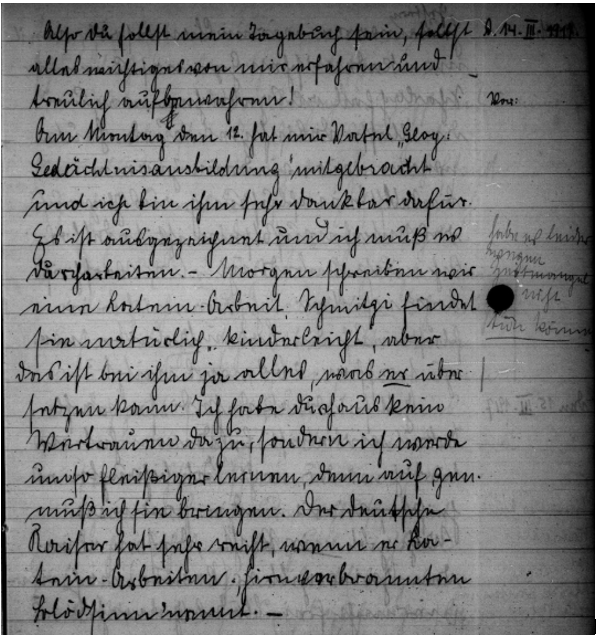 Also du sollst mein Tagebuch sein, sollst
alles wichtiges von mir erfahren und
treulich aufbewahren!
Am Montag den 12. hat mir Vater „Geog.
Gedächtnisausbildung" mitgebracht
und ich bin ihm sehr dankbar dafür.
Es ist ausgezeichnet und ich muß es
durcharbeiten. – Morgen schreiben wir
eine Latein-Arbeit. Schmitzi findet
sie natürlich „kinderleicht", aber
das ist bei ihm ja alles, was er über
setzen kann. Ich habe durchaus kein
Vertrauen dazu, sondern ich werde
umso fleißiger lernen, denn auf gen.
muß ich sie bringen. Der deutsche
Kaiser hat sehr recht, wenn er La-
tein-Arbeiten „hirnverbrannten
Blödsinn" nennt. –
D. 14. III. 1917.
Vor:
habe es leider
wegen
Zeitmangel
nicht
tun können
15. III. 1917